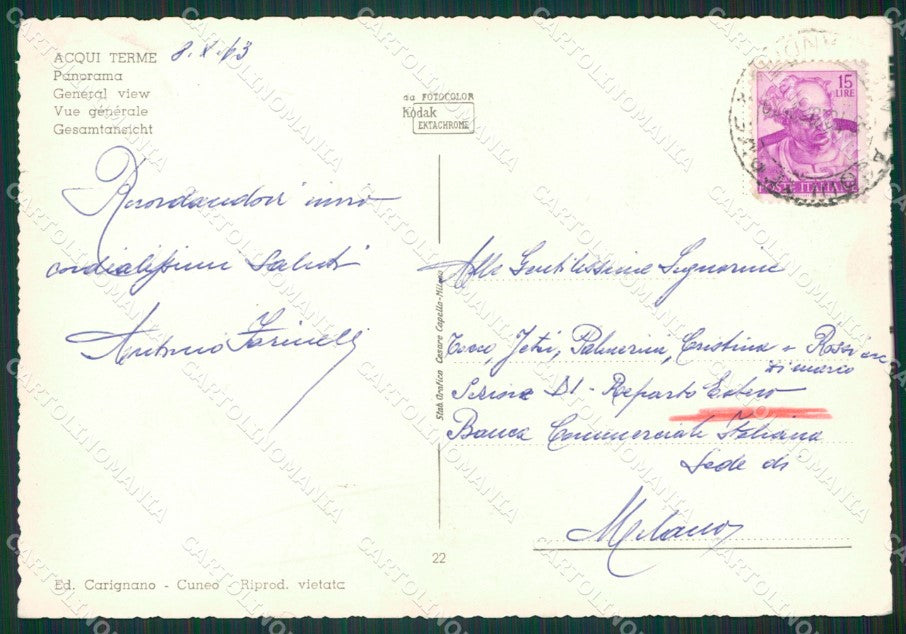 ACQUI TERME 8.X.63
Panorama
General view
Vue générale
Gesamtansicht
da FOTOCOLOR
Kodak
EKTACHROME
15
LIRE
ITALIANE
Ricordandovi invio
cordialissimi saluti
Antonio Farinelli
Alle Gentilissime Signorine
Jetri, Palmerini, Cristina e Rossi
D1 - Reparto Estero
Banca Commerciale Italiana
Sede di
Milano
Stab. Grafico Cesare Capello-Milano
22
Ed. Carignano - Cuneo - Riprod. vietata
CARTOLINOMANIA